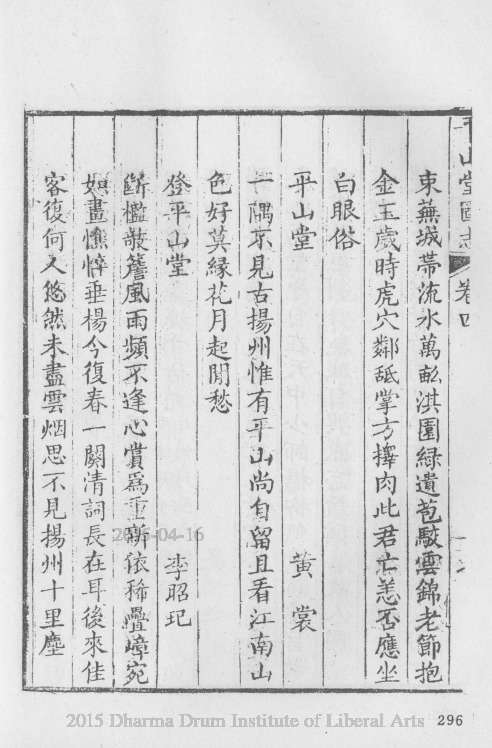 平山堂圖志 卷四
東蕪城帶流水萬畝淇園緑遺苞駁雲錦老節抱
金玉歲時虎穴鄰舐掌方擇肉此君亡恙否應坐
白眼俗
平山堂 黄裳
一隅不見古揚州惟有平山尚自留且看江南山
色好莫緣花月起閒愁
登平山堂 李昭玘
斷檻敧簷風雨頻不逢心賞為重新依稀疊嶂宛
如畫憔悴垂楊今復春一闋清詞長在耳後來佳
客復何人悠然未盡雲烟思不見揚州十里塵
2015-04-16
2015 Dharma Drum Institute of Liberal Arts
296